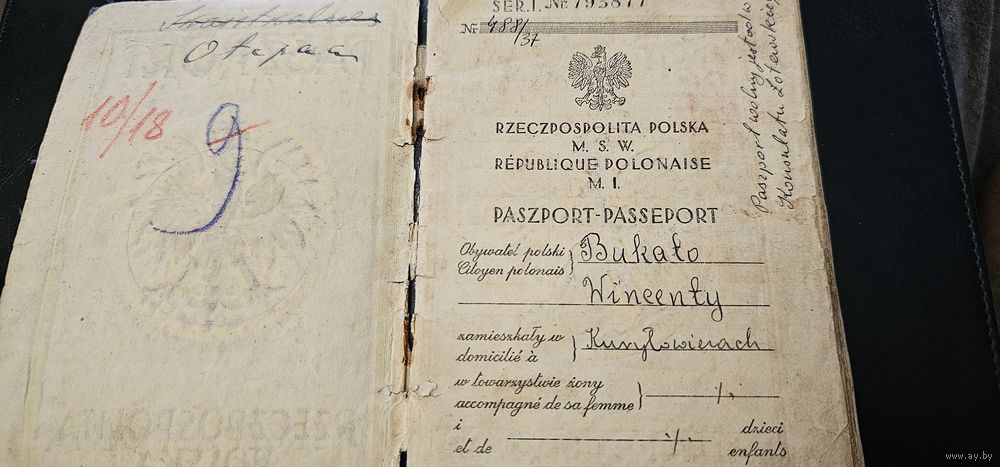 Otepää
10/18
9
SER. I. Nr 793877
Nr 488/37
RZECZPOSPOLITA POLSKA
M. S. W.
RÉPUBLIQUE POLONAISE
M. I.
PASZPORT-PASSEPORT
Obywatel polski
Citoyen polonais } Bukało
Wincenty
zamieszkały w
domicilié à } Kuryłowiczach
w towarzystwie żony
accompagné de sa femme } -/-
i
et de -/- dzieci
enfants
Paszport ważny jest do
Konsulatu Łotewskiego
RZECZPOSPOLITA
POLSKA
www.ay.by